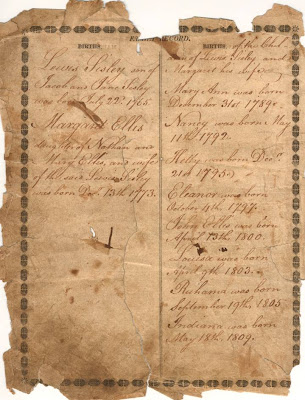 FAMILY RECORD.
BIRTHS.
Lewis Sisley, son of
Jacob and Jane Sisley
was born July 22d 1765.
Margaret Ellis
daughter of Nathan and
Mary Ellis, and wife
of the said Lewis Sisley
was born Dec. 13th 1773.
BIRTHS of the Chil
ren of Lewis Sisley and
Margaret his wife
Mary Ann was born
December 31st 1789
Nancy was born May
11th 1792.
Kelly was born Dec.
21st 1795
Eleanor was born
October 4th 1797.
John Ellis was born
April 13th 1800
Louisa was born
April 9th 1803.
Ruhama was born
September 19th 1805
Indiana was born
May 18th 1809.